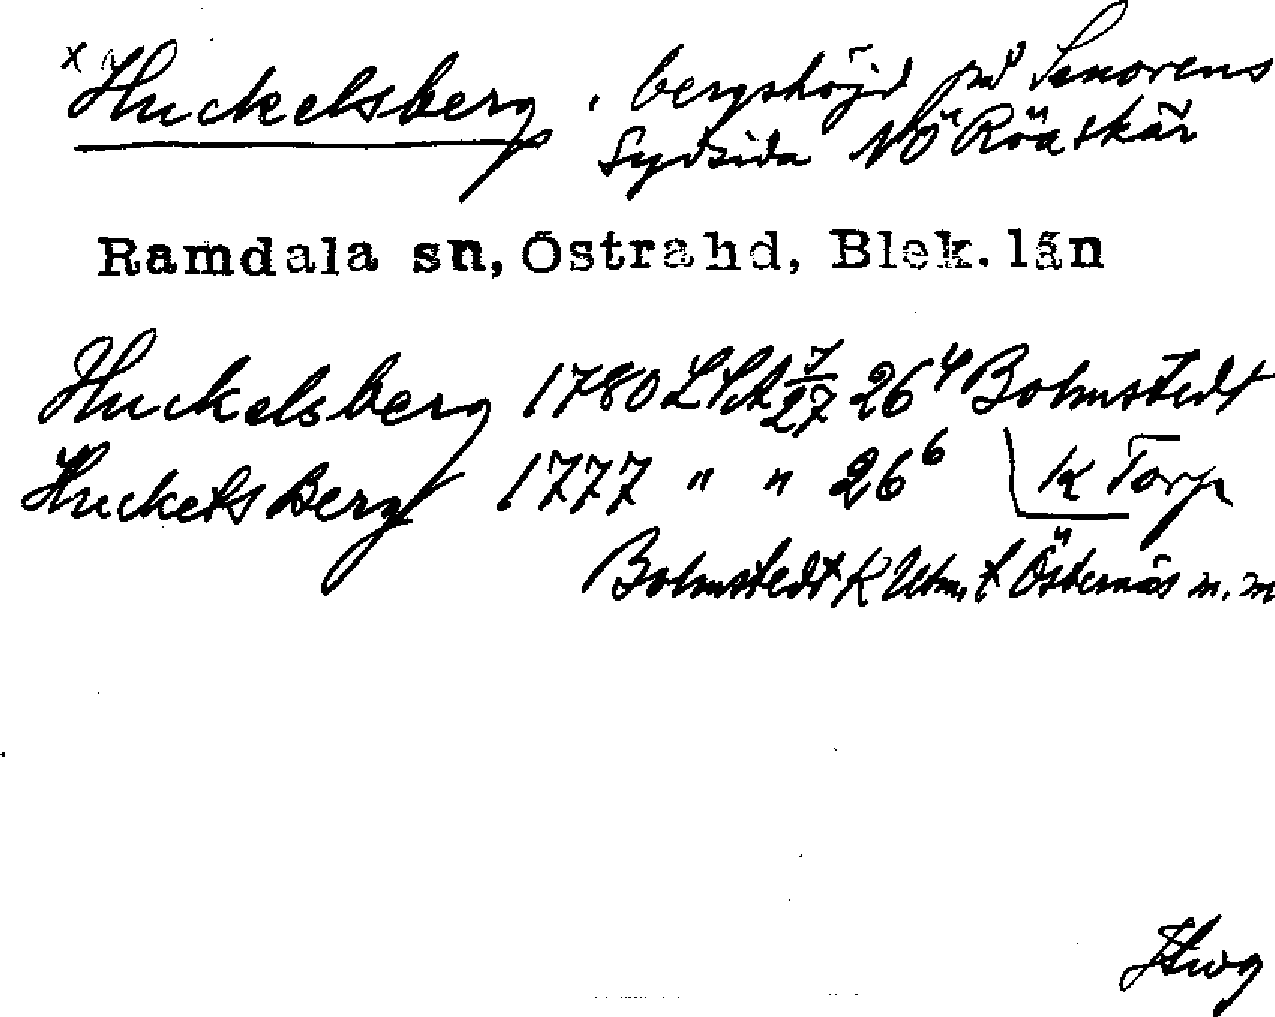 x Huckelsberg, bergshöjd på Senorens
Sydsida NÖ Röaskär
Ramdala sn, Östra hd, Blek. län
Huckelsberg 1780 LSA 7/27 26⁴ Bolmstedt
Huckels Berg 1777 " " 26⁶ K Torp
Bolmstedt K Utm. t Östernäs m.m